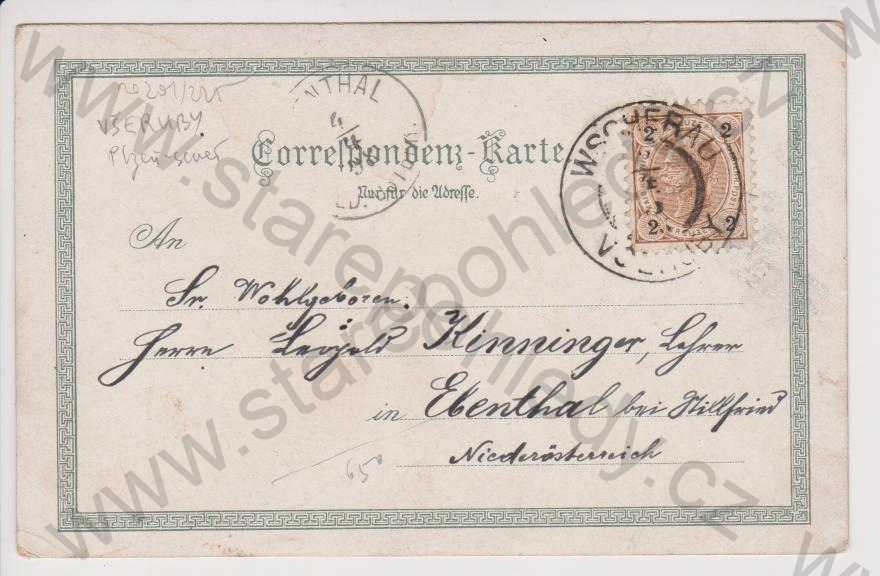 VŠERUBY
Plzeň-sever
ENTHAL
Correspondenz-Karte
Nur für die Adresse.
WSCHERAU
VŠERUBY
2 2
2 2
An
Sr. Wohlgeboren.
Herrn Leopold Kinninger, Lehrer
in Ebenthal bei Stillfried
Niederösterreich
650
www.starepohledy.cz